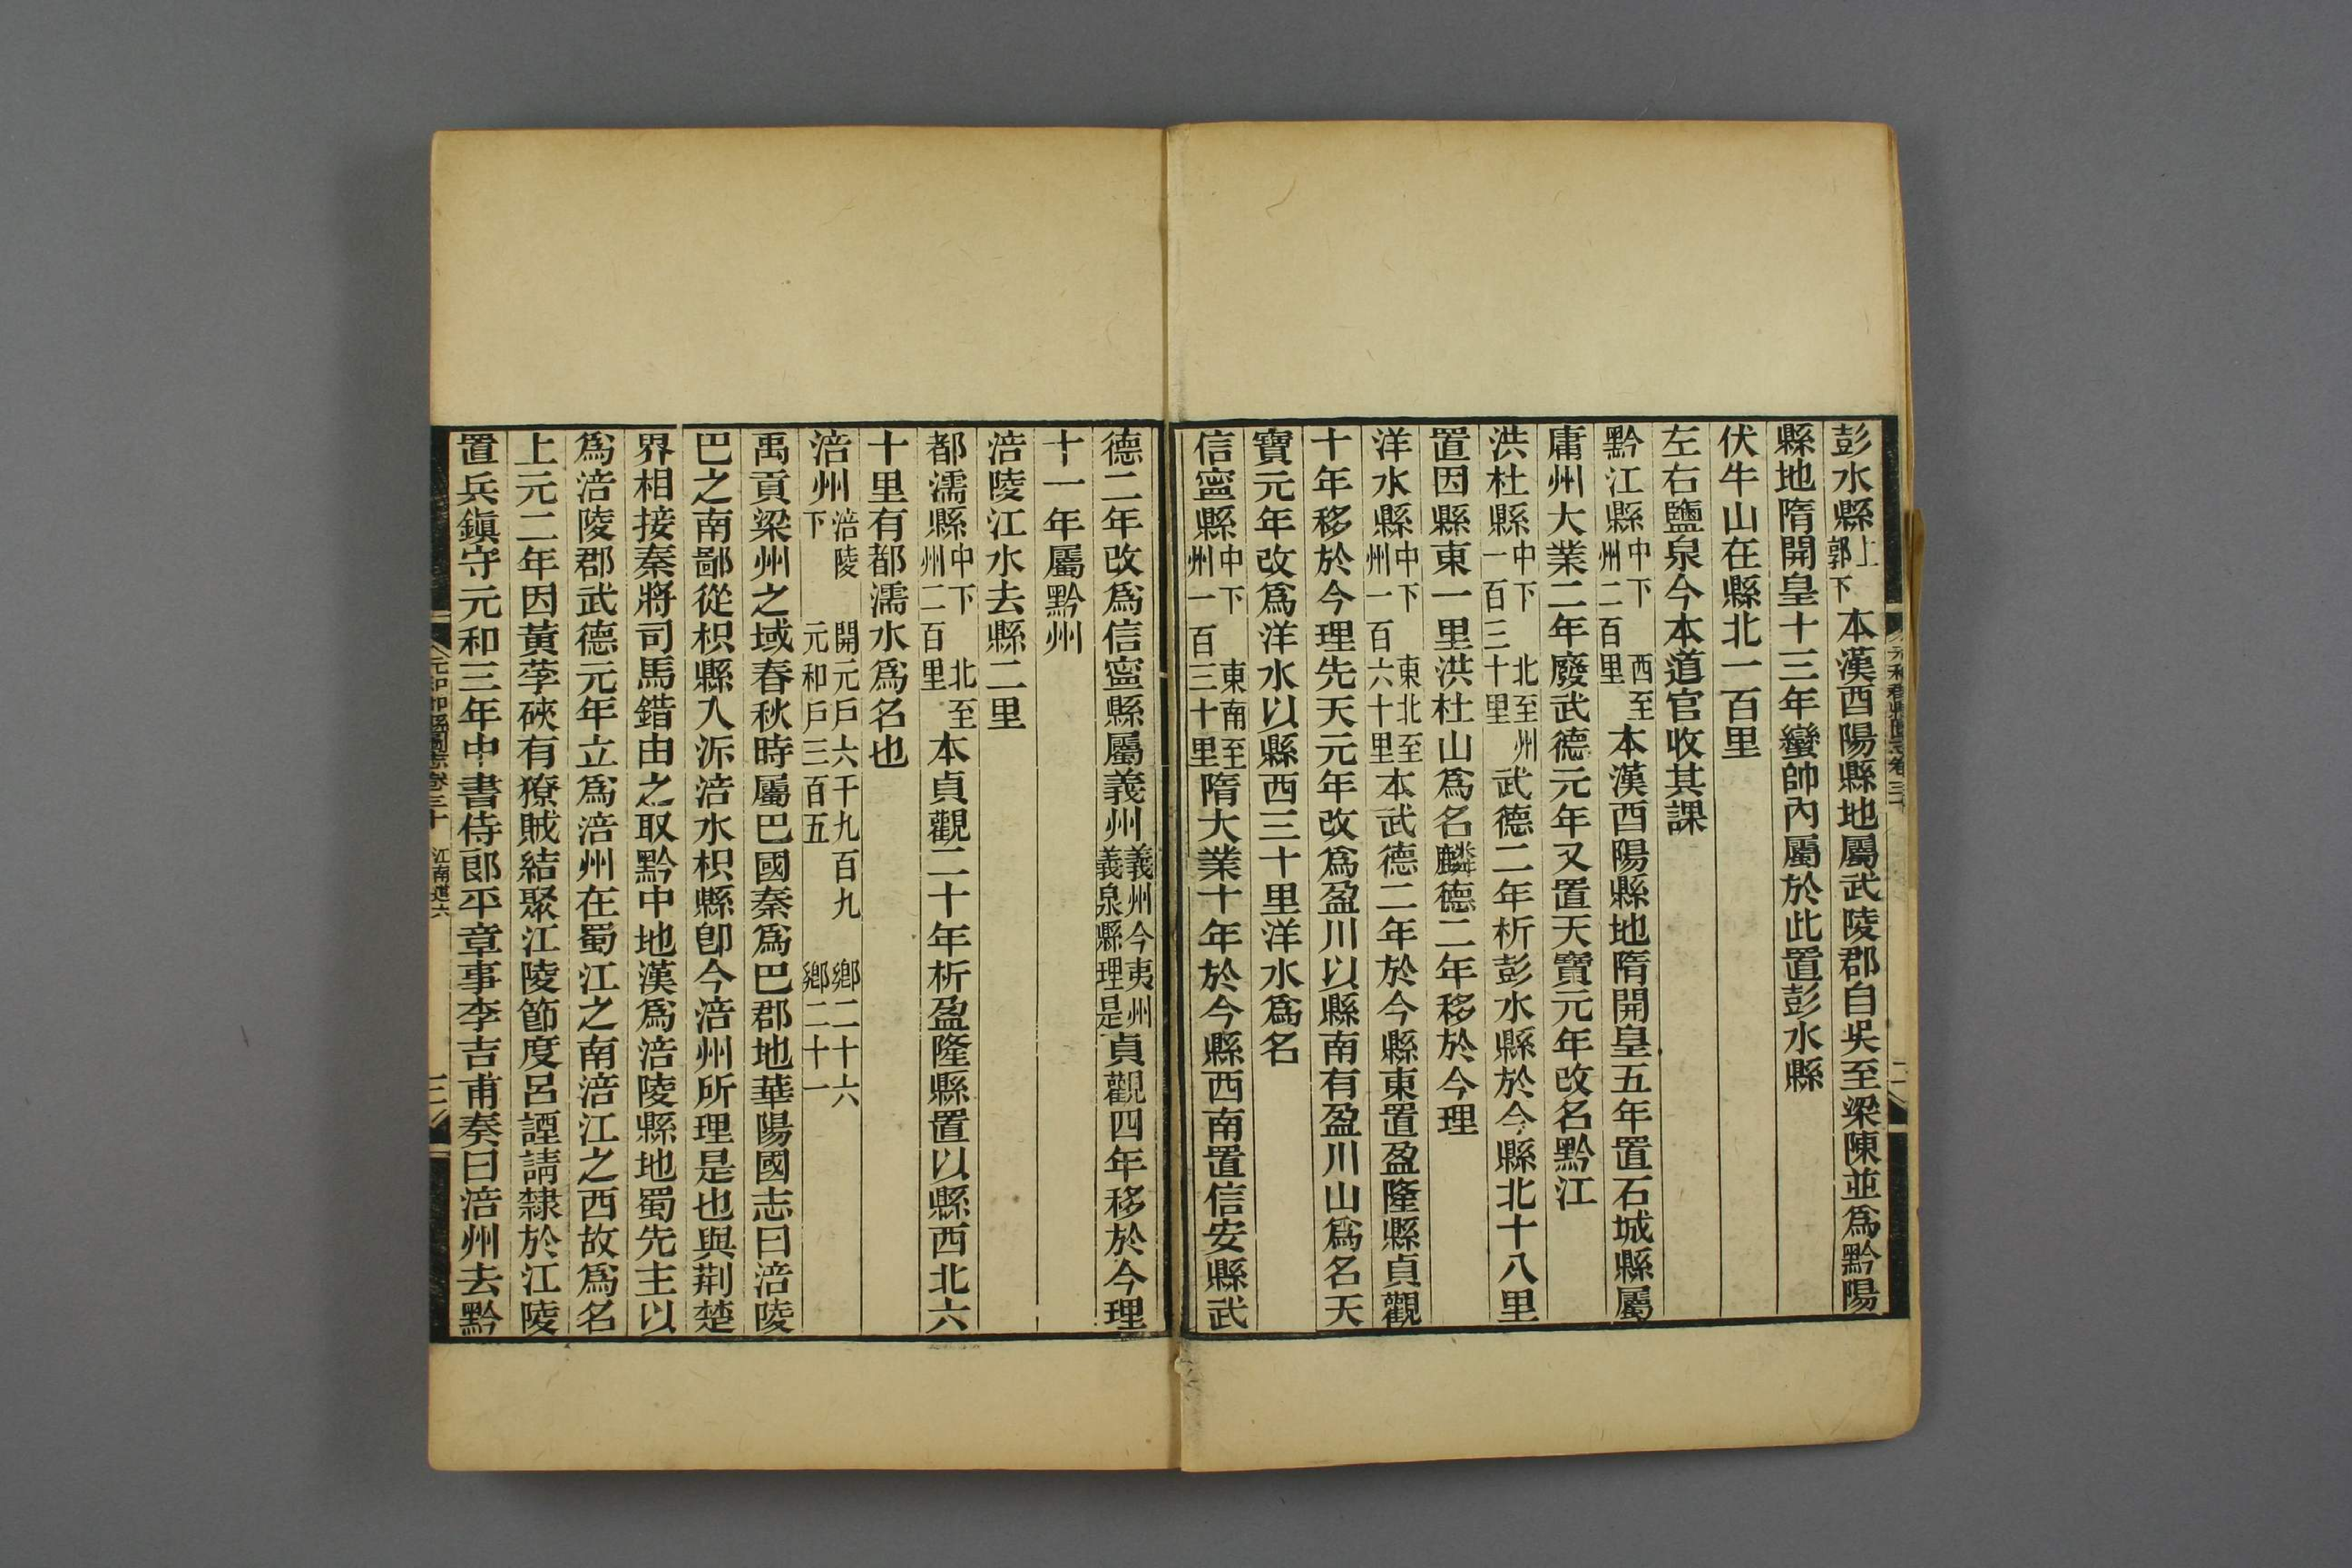 彭水縣上郭下本漢酉陽縣地屬武陵郡自吳至梁陳並爲黔陽
縣地隋開皇十三年蠻帥內屬於此置彭水縣
伏牛山在縣北一百里
左右鹽泉今本道官收其課
黔江縣中下西至州二百里本漢酉陽縣地隋開皇五年置石城縣屬
庸州大業二年廢武德元年又置天寶元年改名黔江
洪杜縣中下北至州一百三十里武德二年析彭水縣於今縣北十八里
置因縣東一里洪杜山爲名麟德二年移於今理
洋水縣中下東北至州一百六十里本武德二年於今縣東置盈隆縣貞觀
十年移於今理先天元年改爲盈川以縣南有盈川山爲名天
寶元年改爲洋水以縣西三十里洋水爲名
信寧縣中下東南至州一百三十里隋大業十年於今縣西南置信安縣武
元和郡縣圖志卷三十
二
德二年改爲信寧縣屬義州義州今夷州義泉縣理是貞觀四年移於今理
十一年屬黔州
涪陵江水去縣二里
都濡縣中下北至州二百里本貞觀二十年析盈隆縣置以縣西北六
十里有都濡水爲名也
涪州涪陵下開元戶六千九百九鄉二十六元和戶三百五鄉二十一
禹貢梁州之域春秋時屬巴國秦爲巴郡地華陽國志曰涪陵
巴之南鄙從枳縣入泝涪水枳縣卽今涪州所理是也與荊楚
界相接秦將司馬錯由之取黔中地漢爲涪陵縣地蜀先主以
爲涪陵郡武德元年立爲涪州在蜀江之南涪江之西故爲名
上元二年因黃莩硤有獠賊結聚江陵節度呂諲請隸於江陵
置兵鎮守元和三年中書侍郞平章事李吉甫奏曰涪州去黔
元和郡縣圖志卷三十 江南道六
三